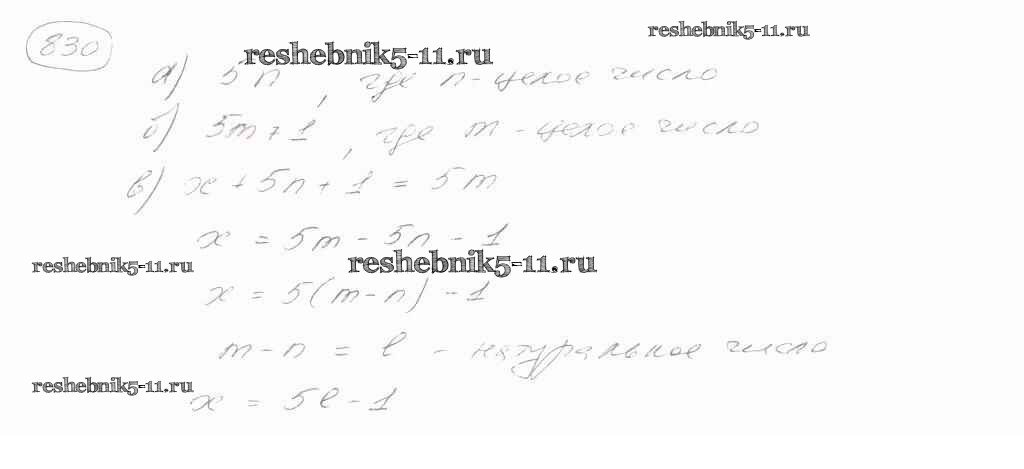 830
reshebnik5-11.ru
reshebnik5-11.ru
а) 5n, где n - целое число
б) 5m + 1, где m - целое число
в) x + 5n + 1 = 5m
x = 5m - 5n - 1
reshebnik5-11.ru
reshebnik5-11.ru
x = 5(m - n) - 1
m - n = l - натуральное число
reshebnik5-11.ru
x = 5l - 1